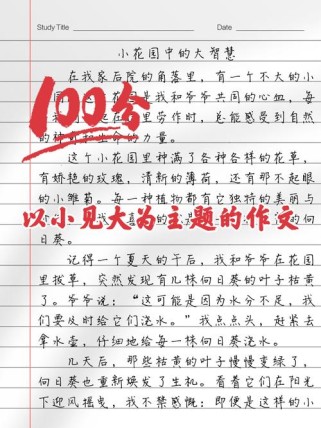 Study Title
Date
小花园中的大智慧
在我家后院的角落里，有一个不大的小
是我和爷爷共同的心血，每
里劳作时，总能感受到自然
的力量。
100分
这个小花园里种满了各种各样的花草，
有娇艳的玫瑰，清新的薄荷，还有那不起眼
的小雏菊。每一种植物都有它独特的美丽与
以小见大为主题的作文
日葵。
记得一个夏天的午后，我和爷爷在花园
里拔草，突然发现有几株向日葵的叶子枯黄
了。爷爷说：“这可能是因为水分不足，我
们要及时给它们浇水。”我点点头，赶紧去
拿水壶，仔细地给每一株向日葵浇水。
几天后，那些枯黄的叶子慢慢变绿了，
向日葵也重新焕发了生机。看着它们在阳光
下迎风摇曳，我不禁感慨：即便是这样的小